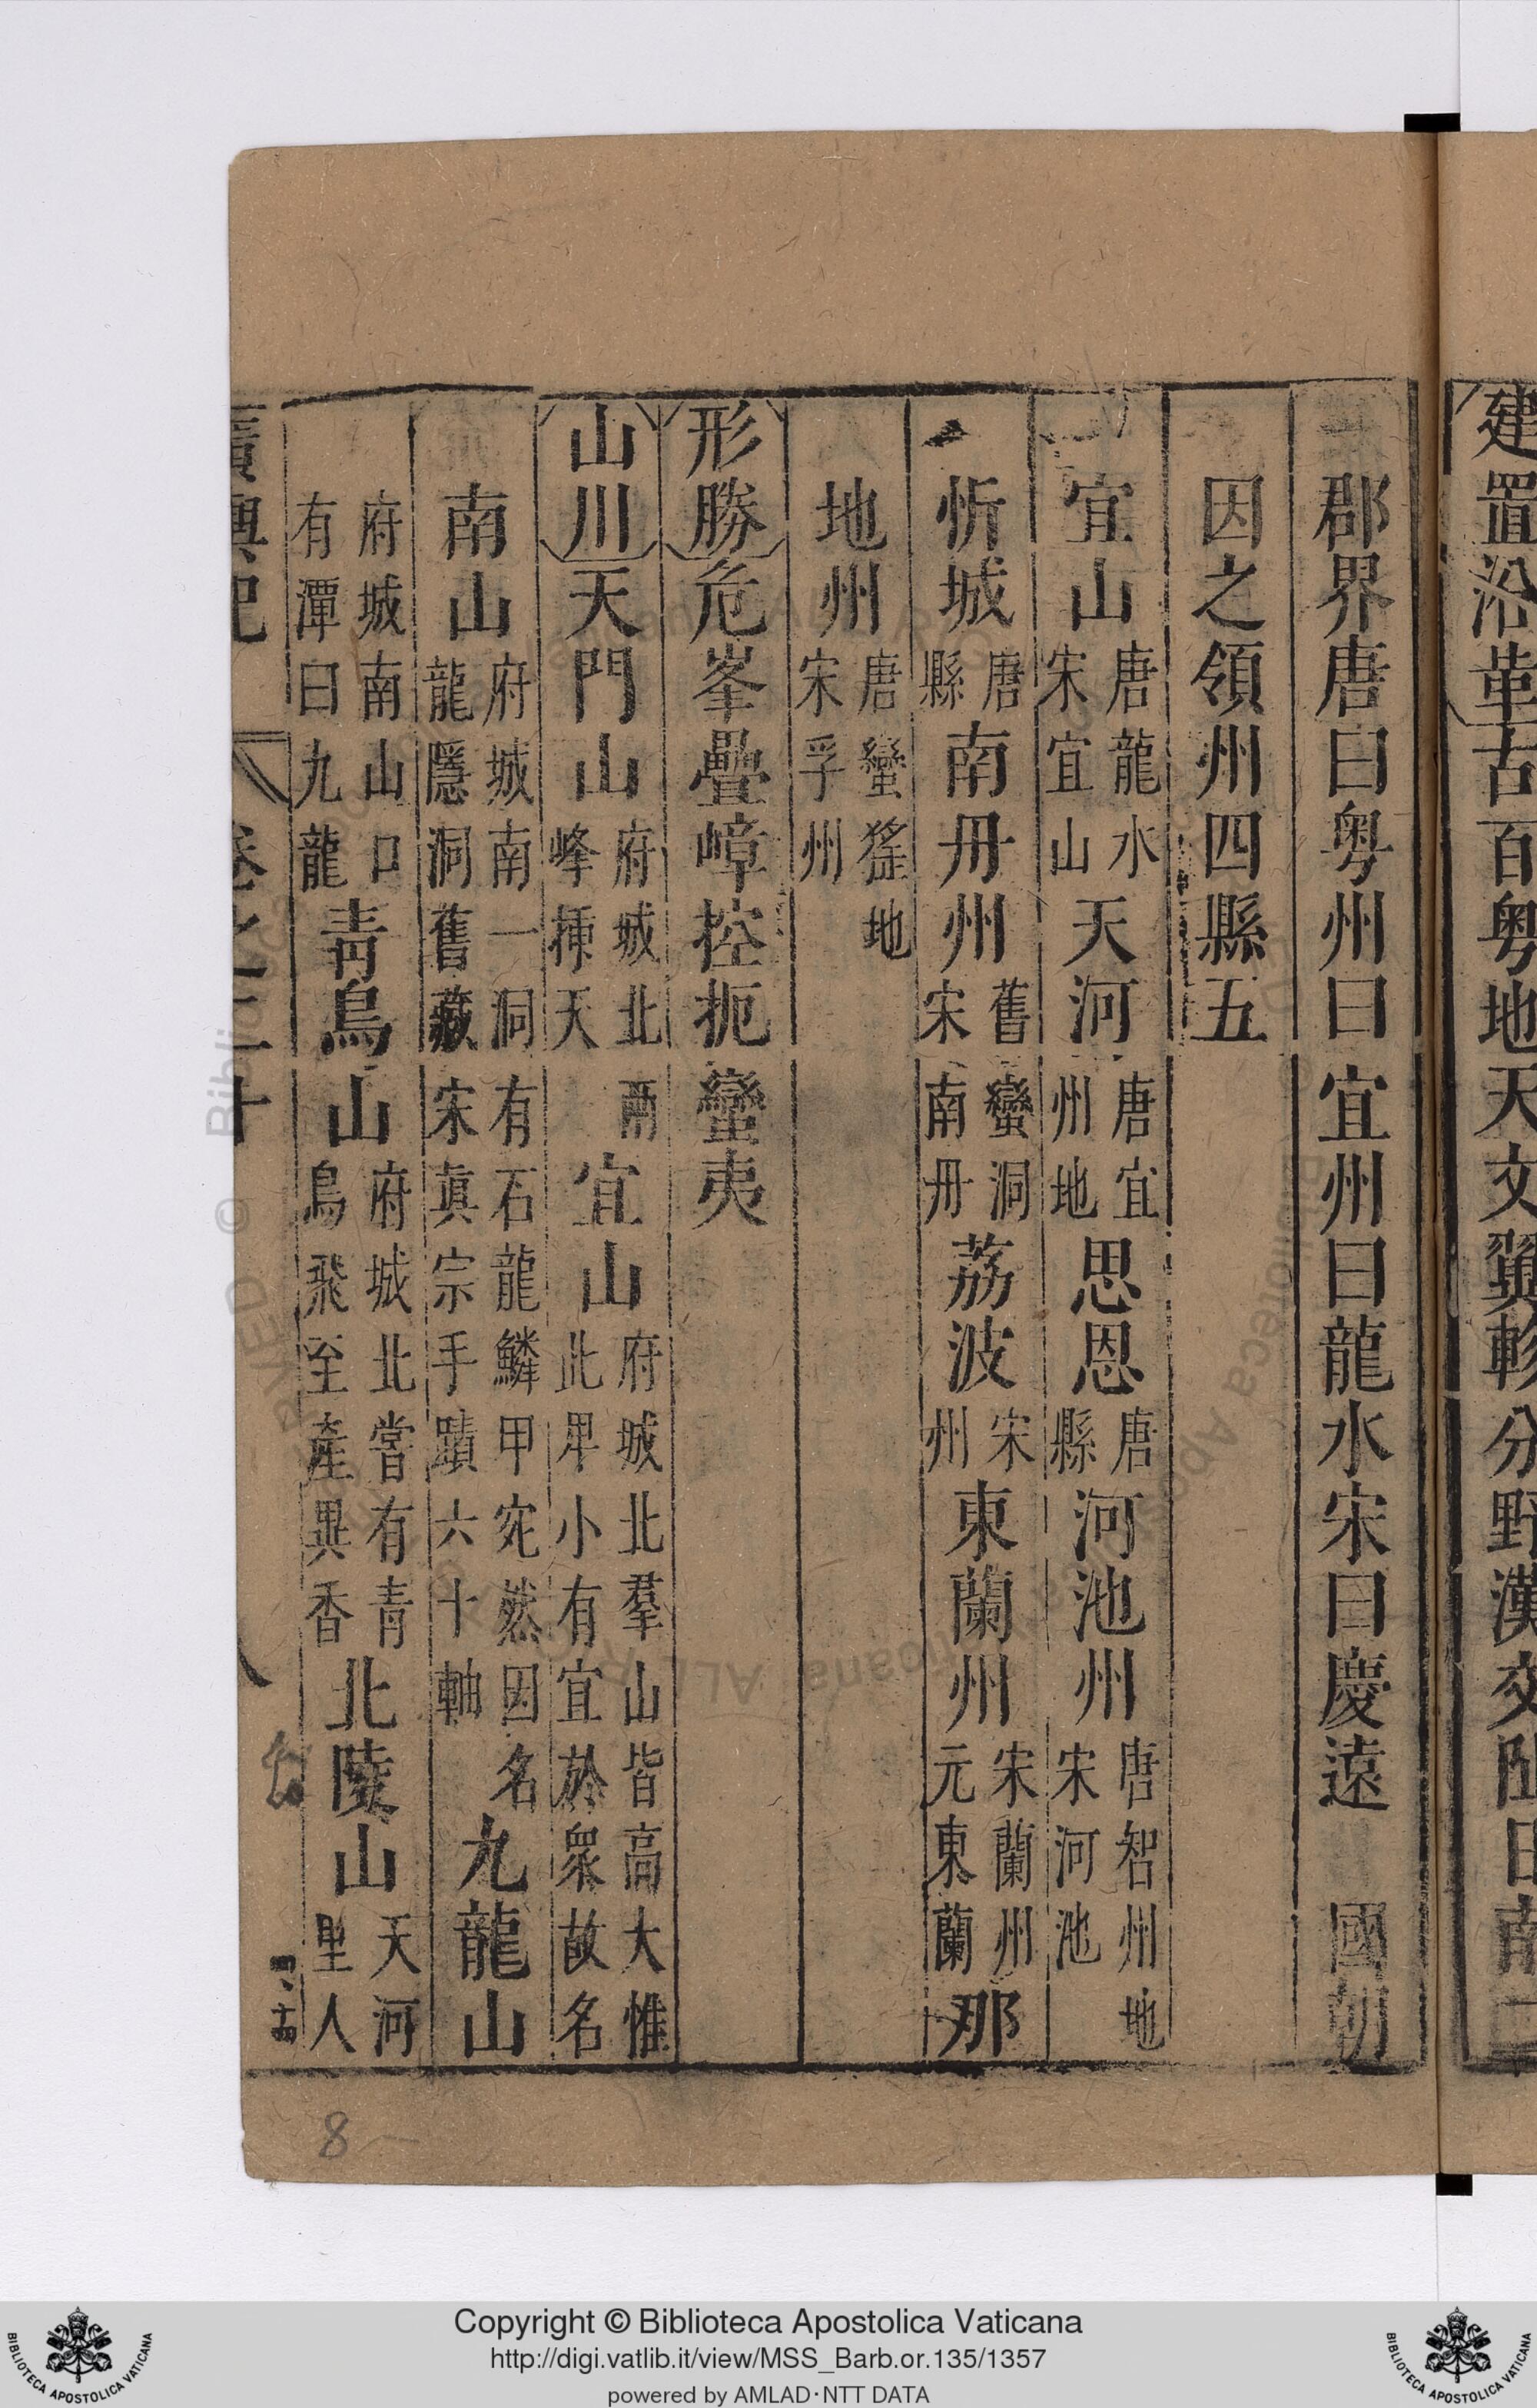 建置沿革古百粤地天文翼軫分野漢交阯日南二
郡界唐曰粤州曰宜州曰龍水宋曰慶遠 國朝
因之領州四縣五
宜山唐龍水宋宜山天河唐宜州地思恩唐縣河池州唐智州地宋河池
忻城唐縣南丹州舊蠻洞宋南丹荔波宋州東蘭州宋蘭州元東蘭那
地州唐蠻猺地宋孚州
形勝危峯疊嶂控扼蠻夷
山川天門山府城北兩峰插天宜山府城北羣山皆高大惟此卑小有宜於衆故名
南山府城南一洞有石龍鱗甲宛然因名龍隱洞舊藏宋眞宗手蹟六十軸九龍山
府城南山口有潭曰九龍青鳥山府城北嘗有青鳥飛至產異香北陵山天河里人
廣輿記 卷之二十
8
Copyright © Biblioteca Apostolica Vaticana
http://digi.vatlib.it/view/MSS_Barb.or.135/1357
powered by AMLAD·NTT DATA
BIBLIOTECA APOSTOLICA VATICANA
BIBLIOTECA APOSTOLICA VATICANA